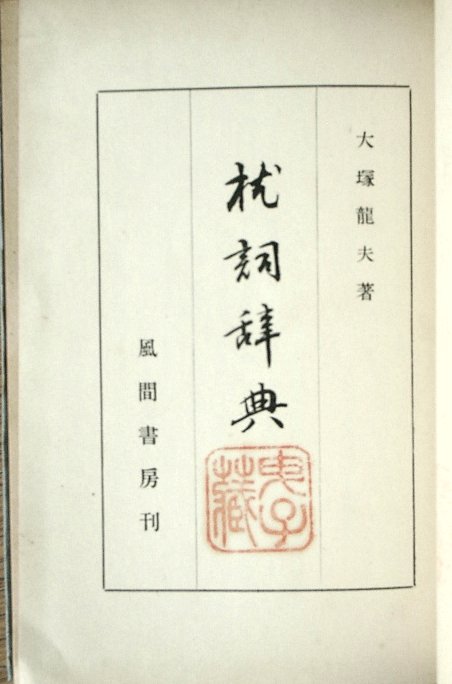 大塚龍夫著
枕詞辞典
風間書房刊